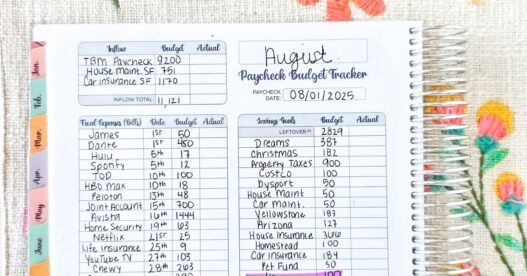 Jan.
Feb.
Mar.
Apr.
May
June
August
Paycheck Budget Tracker
PAYCHECK DATE: 08/01/2025
Inflow Budget Actual
TBM Paycheck 9200
House Maint. SF 751
Car insurance SF 1170
INFLOW TOTAL 11,121
Fixed Expenses (Bills) Date Budget Actual
James 1st 50
Dante 1st 450
Hulu 5th 17
Spotify 5th 12
TOD 10th 100
HBO max 10th 18
Peloton 13th 48
Joint Account 15th 700
Avista 16th 1444
Home Security 19th 63
Netflix 21st 25
Life Insurance 25th 9
YouTube TV 27th 103
Chewy 28th 263
Savings Goals Budget Actual
LEFTOVER 2829
Dreams 387
Christmas 182
Property Taxes 900
Costco 100
Dysport 50
House Maint 50
Car Maint. 50
Yellowstone 183
Arizona 127
House Insurance 366
Homestead 100
Car insurance 184
Pet Fund 50
100